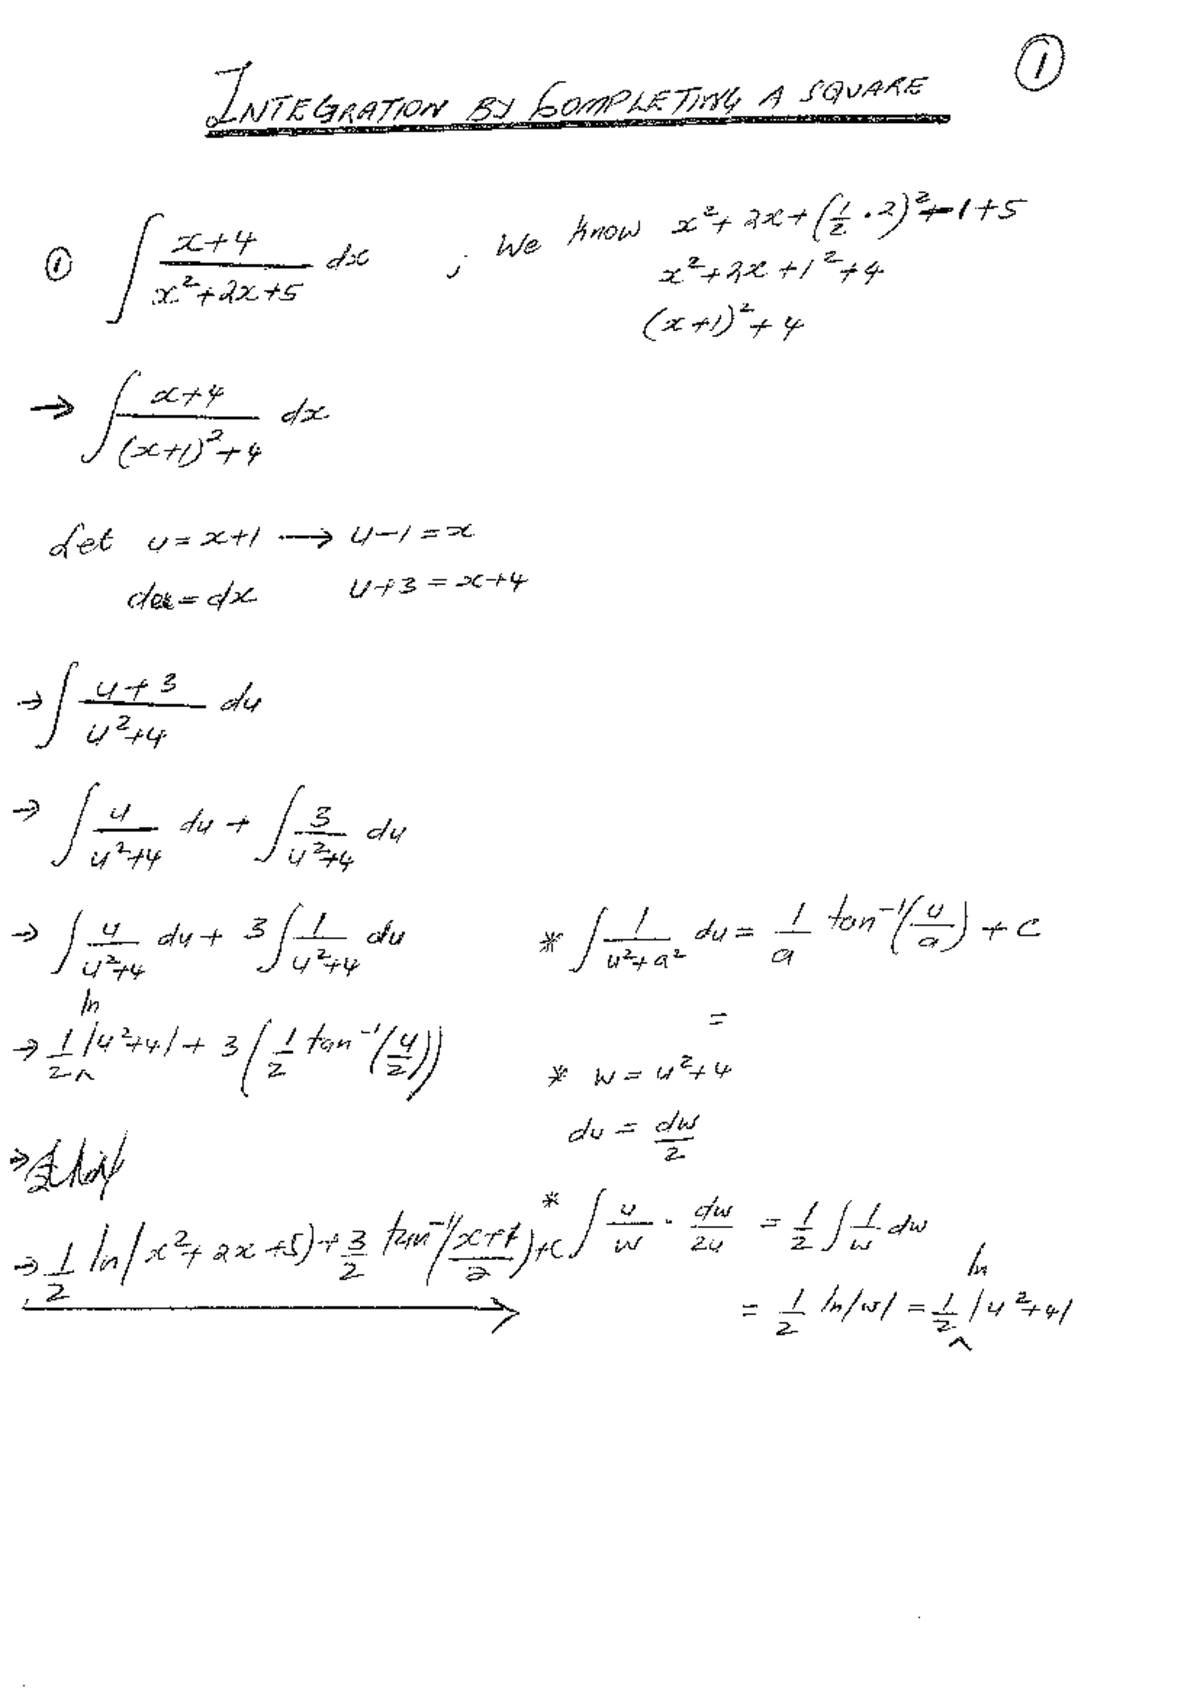 ①
INTEGRATION BY COMPLETING A SQUARE
① ∫ (x+4)/(x²+2x+5) dx ; We know x²+2x+(1/2·2)²-1+5
x²+2x+1²+4
(x+1)²+4
→ ∫ (x+4)/((x+1)²+4) dx
Let u=x+1 → u-1=x
du=dx u+3=x+4
→ ∫ (u+3)/(u²+4) du
→ ∫ u/(u²+4) du + ∫ 3/(u²+4) du
→ ∫ u/(u²+4) du + 3 ∫ 1/(u²+4) du * ∫ 1/(u²+a²) du = 1/a tan⁻¹(u/a) + C
=
→ 1/2 ln|u²+4| + 3(1/2 tan⁻¹(u/2))
* w = u²+4
du = dw/2
→ 1/2 ln|x²+2x+5)+3/2 tan⁻¹(x+1/2)+C
* ∫ u/w · dw/2u = 1/2 ∫ 1/w dw
= 1/2 ln|w| = 1/2 ln|u²+4|